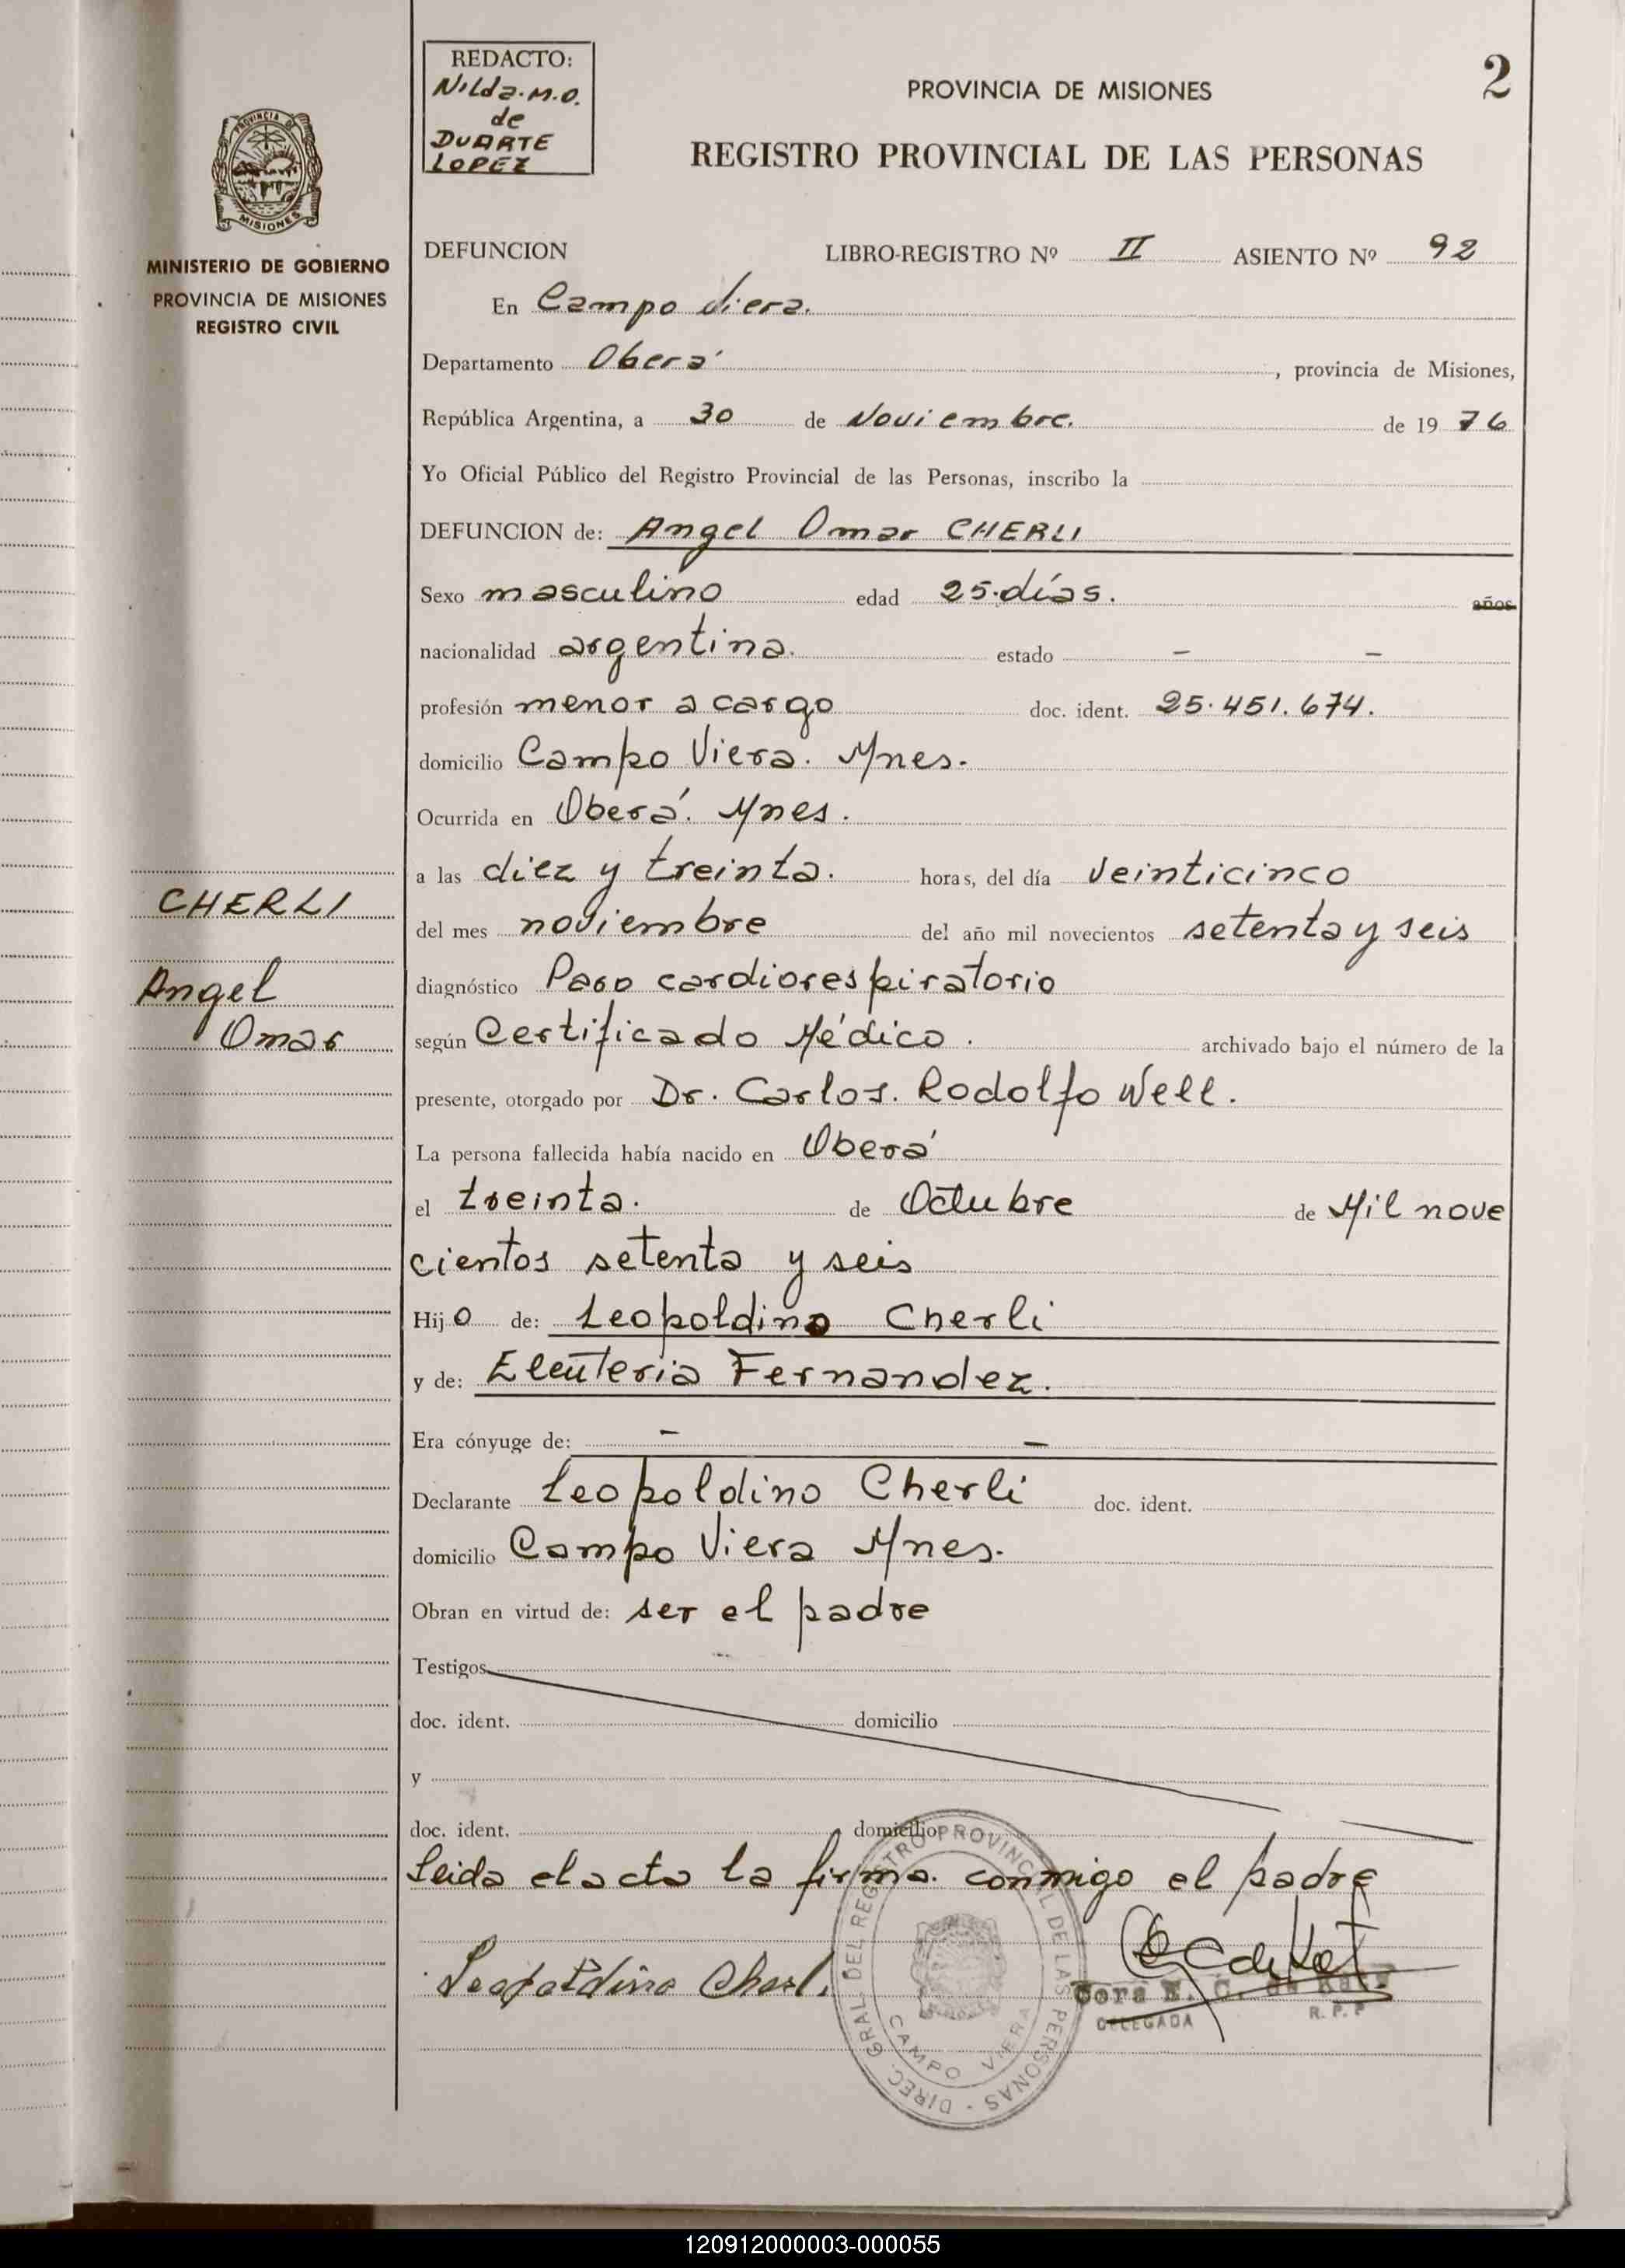 REDACTO:
Nilda. M.O.
de
DUARTE
LOPEZ
PROVINCIA DE MISIONES
2
REGISTRO PROVINCIAL DE LAS PERSONAS
PROVINCIA DE
MISIONES
MINISTERIO DE GOBIERNO
PROVINCIA DE MISIONES
REGISTRO CIVIL
DEFUNCION LIBRO-REGISTRO Nº II ASIENTO Nº 92
En Campo Viera.
Departamento Oberá, provincia de Misiones,
República Argentina, a 30 de Noviembre. de 19 76
Yo Oficial Público del Registro Provincial de las Personas, inscribo la
DEFUNCION de: Angel Omar CHERLI
Sexo masculino edad 25 días. años
nacionalidad argentina. estado - -
profesión menor a cargo doc. ident. 25.451.674.
domicilio Campo Viera. Mnes.
Ocurrida en Oberá. Mnes.
a las diez y treinta. horas, del día veinticinco
del mes noviembre del año mil novecientos setenta y seis
diagnóstico Paro cardiorespiratorio
según Certificado Médico. archivado bajo el número de la
presente, otorgado por Dr. Carlos. Rodolfo Well.
La persona fallecida había nacido en Oberá
el treinta. de Octubre de Mil nove
cientos setenta y seis
Hijo de: Leopoldino Cherli
y de: Eleuteria Fernandez.
Era cónyuge de: - -
Declarante Leopoldino Cherli doc. ident.
domicilio Campo Viera Mnes.
Obran en virtud de: ser el padre
Testigos
doc. ident. domicilio
y
doc. ident. domicilio
Leida el acta la firma. conmigo el padre
Leopoldino Cherli
CHERLI
Angel
Omar
DIREC. GRAL DEL REGISTRO PROVINCIAL DE LAS PERSONAS -
CAMPO VIERA
DELEGADA
R. P. P
120912000003-000055